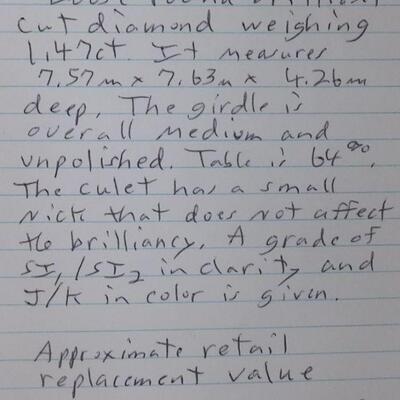 cut diamond weighing
1.47ct. It measures
7.57m x 7.63m x 4.26m
deep. The girdle is
overall medium and
unpolished. Table is 64%.
The culet has a small
nick that does not affect
the brilliancy. A grade of
SI1/SI2 in clarity and
J/K in color is given.
Approximate retail
replacement value